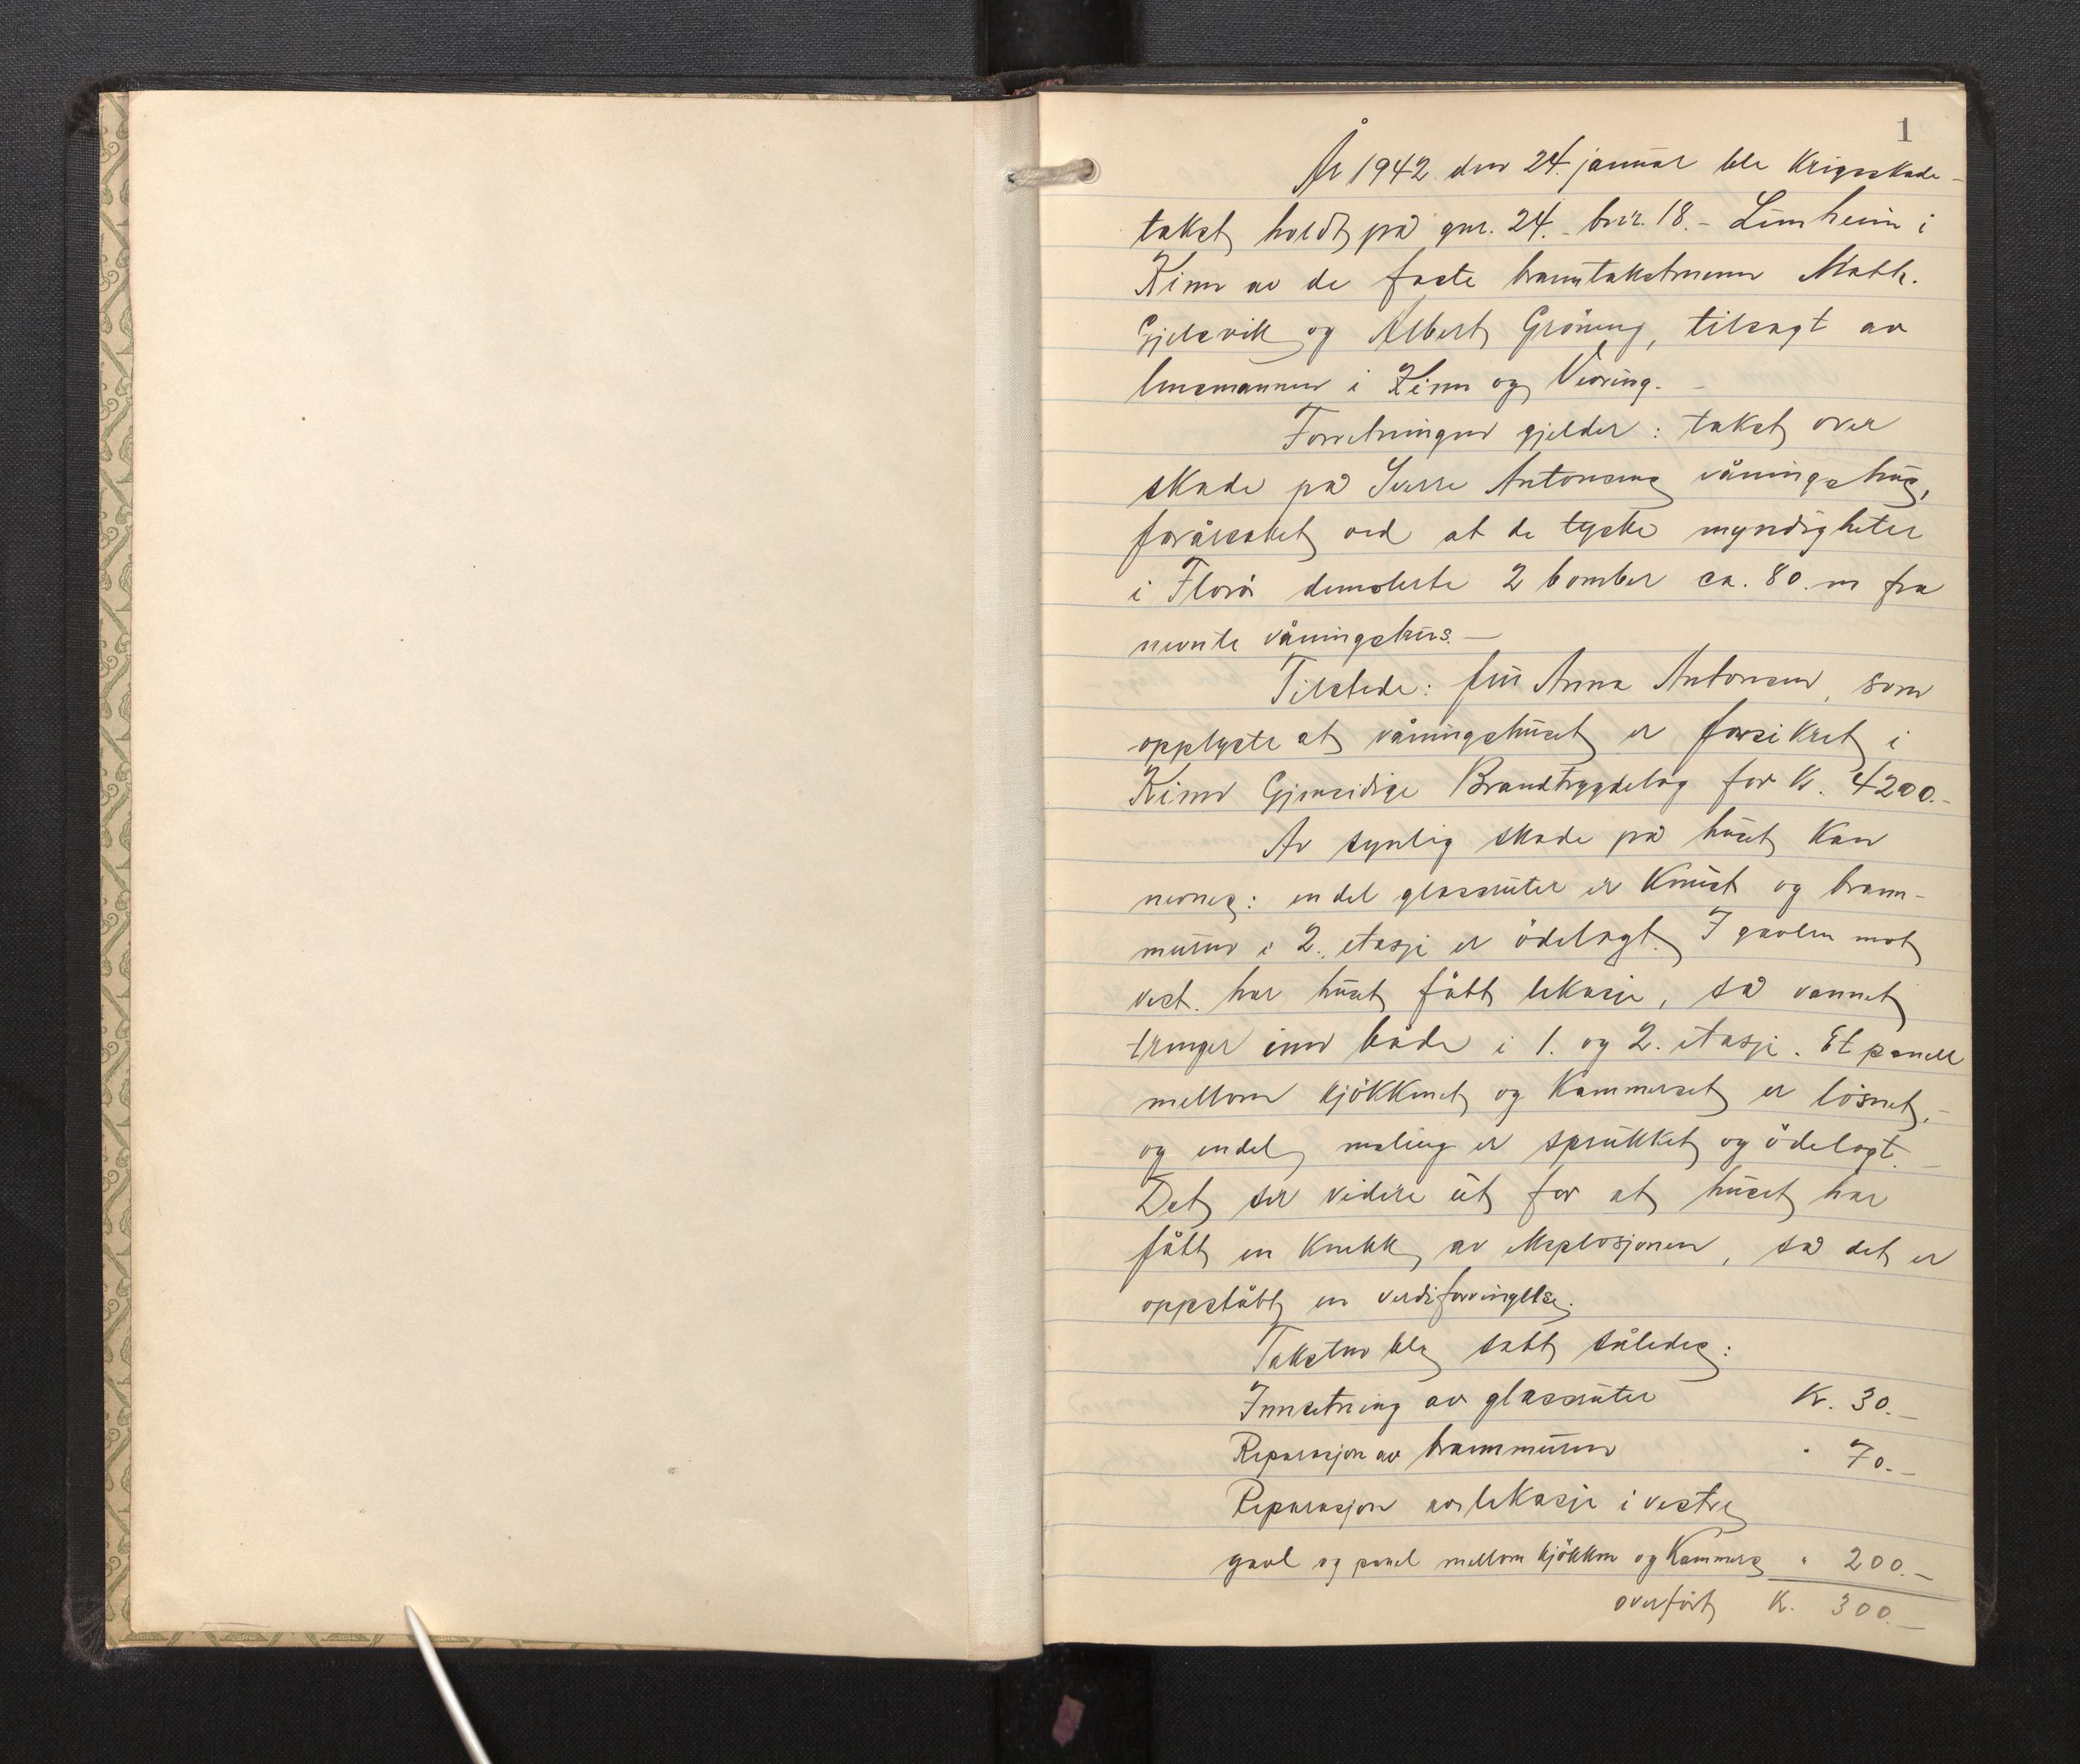 1
År 1942 den 24. januar ble krigsskade-
takst holdt på gnr. 24. - bnr. 18. - Limheim i
Kinn av de faste branntakstmenn Matth.
Gjelsvik og Albert Gröning, tilsagt av
lensmannen i Kinn og Vevring. -
Forretningen gjelder: takst over
skade på Sverre Antonsens våningshus,
forårsaket ved at de tyske myndigheter
i Florö demolerte 2 bomber ca. 80. m fra
nevnte våningshus. -
Tilstede: fru Anna Antonsen, som
opplyste at våningshuset er forsikret i
Kinn Gjensidige Brandtrygdelag for kr. 4200.-
Av synlig skade på huset kan
nevnes: endel glassruter er knust og brann-
muren i 2. etasje er ödelagt. I gavlen mot
vest. har huset fått lekasje, så vannet
trenger inn både i 1. og 2. etasje. Et panell
mellom kjökkenet og kammerset er lösnet, -
og endel maling er sprukket og ödelagt. -
Det ser videre ut for at huset har
fått en knekk av eksplosjonen, så det er
oppstått en verdiforringelse.
Taksten ble satt således:
Innsetning av glassruter kr. 30.-
Reparasjon av brannmuren " 70.-
Reparasjon av lekasje i vestre
gavl og panel mellom kjökken og kammers " 200.-
overfört kr. 300.-